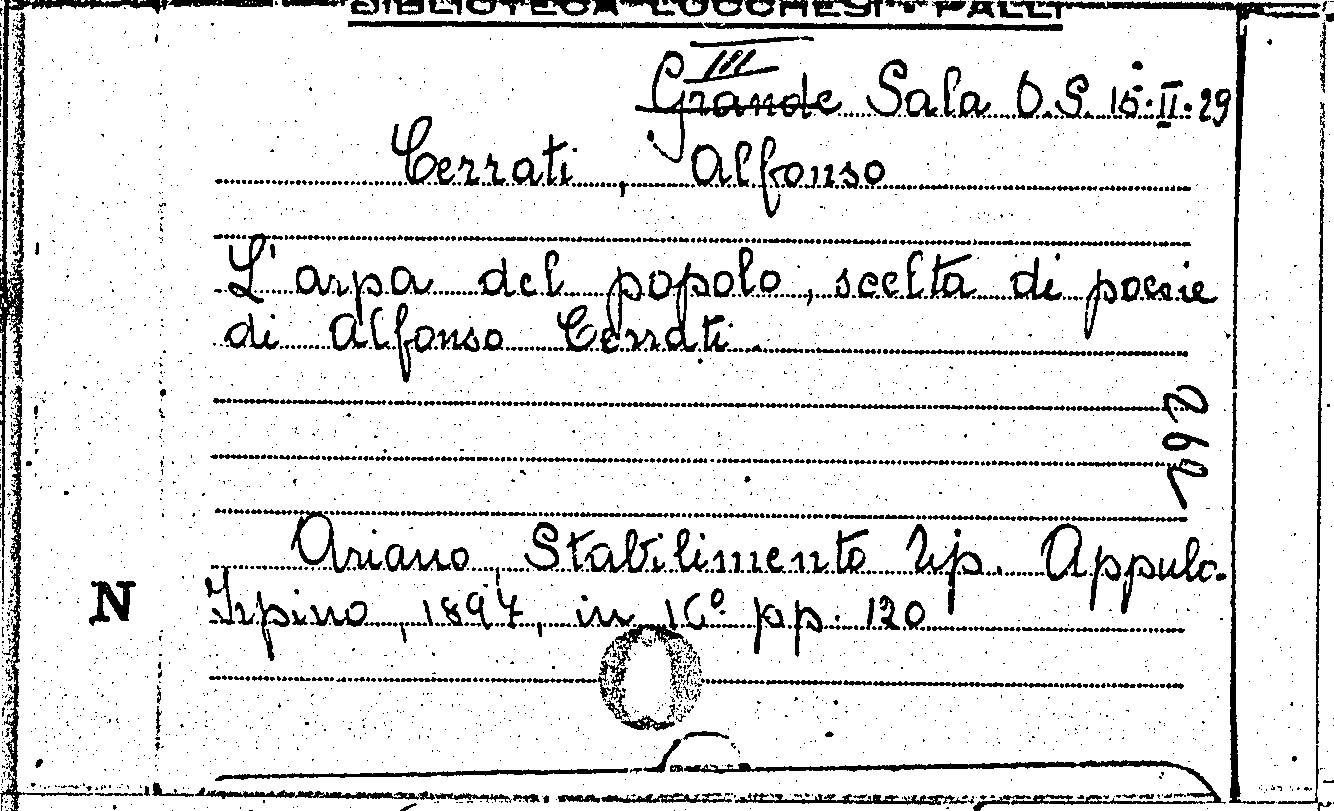 BIBLIOTECA LUCCHESI - PALLI
III
Grande Sala O.S. 15.II.29
Cerrati, Alfonso
L'arpa del popolo, scelta di poesie
di Alfonso Cerrati.
Ariano, Stabilimento Tip. Appulo-
N Irpino, 1897, in 16º pp. 120